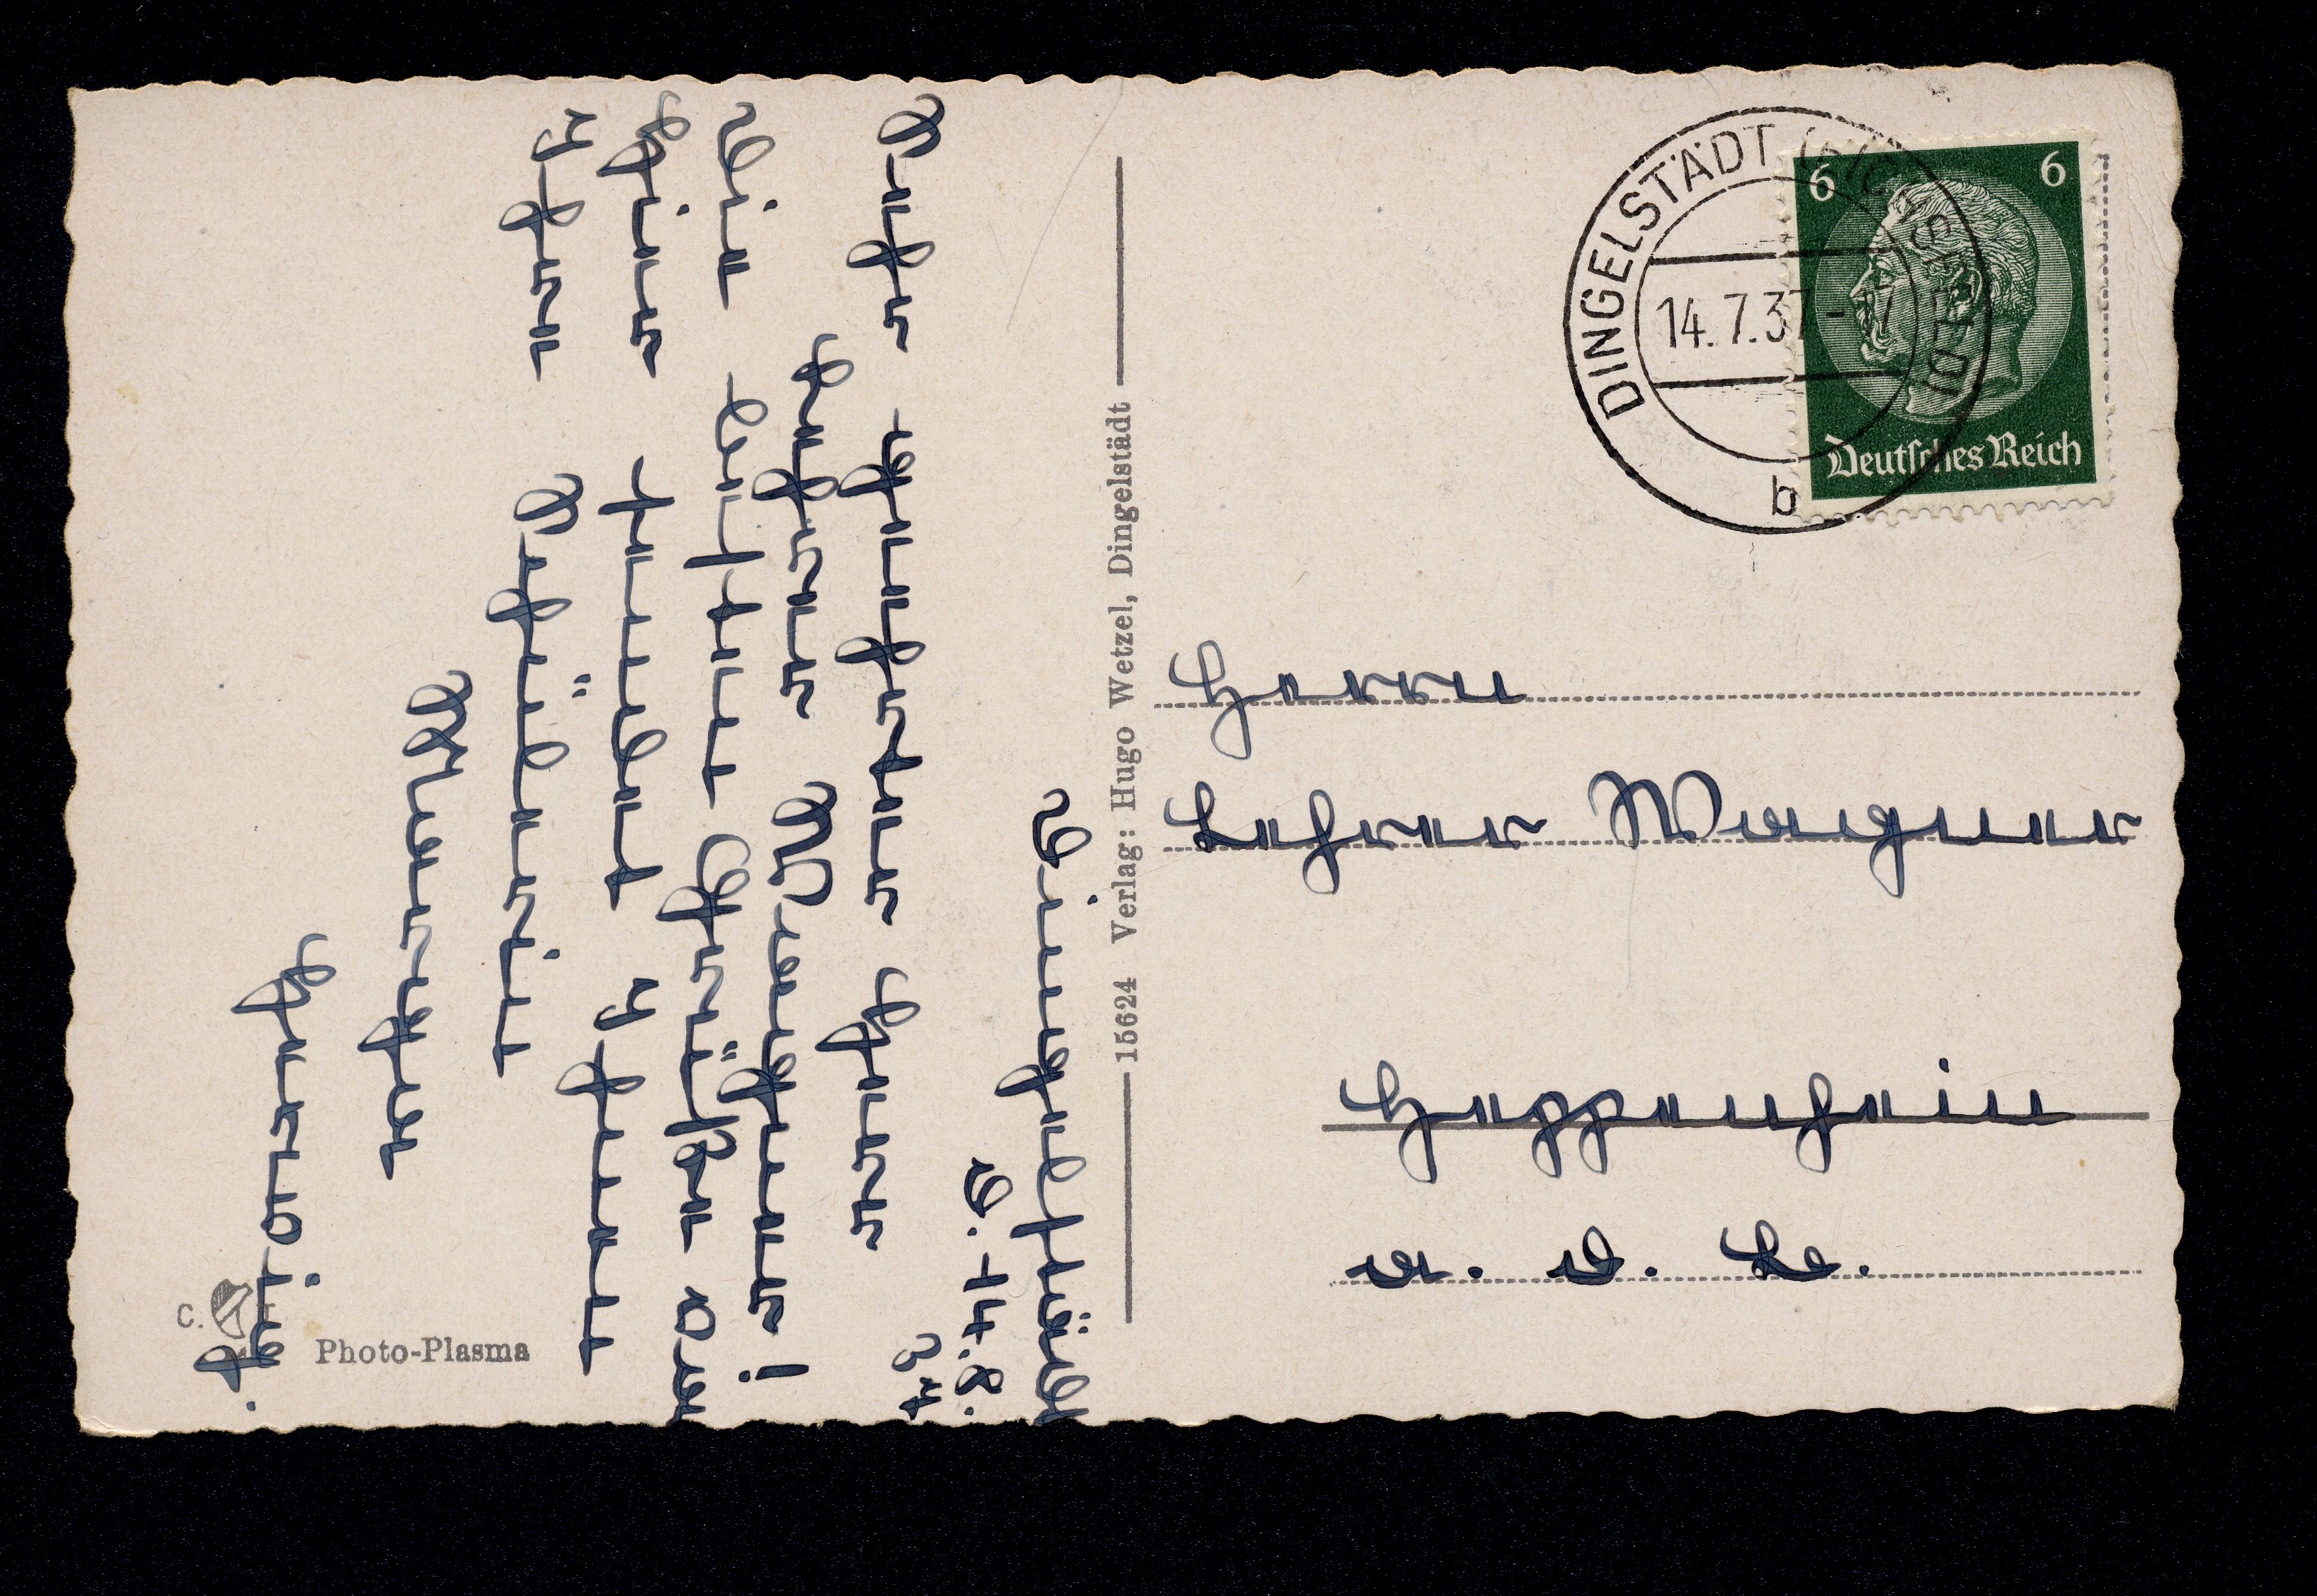 DINGELSTÄDT (EICHSFELD)
14.7.37-17
b
6 6
Deutsches Reich
Herrn
Lehrer Wagner
Heppenheim
a. d. B.
15624 Verlag: Hugo Wetzel, Dingelstädt
Dingelstädt
d. 14.8.
37
Sehr geehrter Herr
Lehrer Wagner!
Die besten Grüße aus
sendet Ihnen
Ihre Schülerin
Photo-Plasma